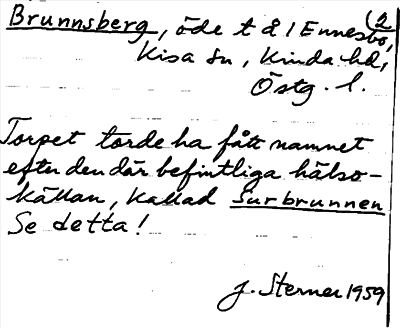 (2
Brunnsberg, öde t å / Ennesbo,
Kisa sn, Kinda hd,
Östg. l.
Torpet torde ha fått namnet
efter den där befintliga hälso-
källan, kallad Surbrunnen
Se detta!
J. Sterner 1959